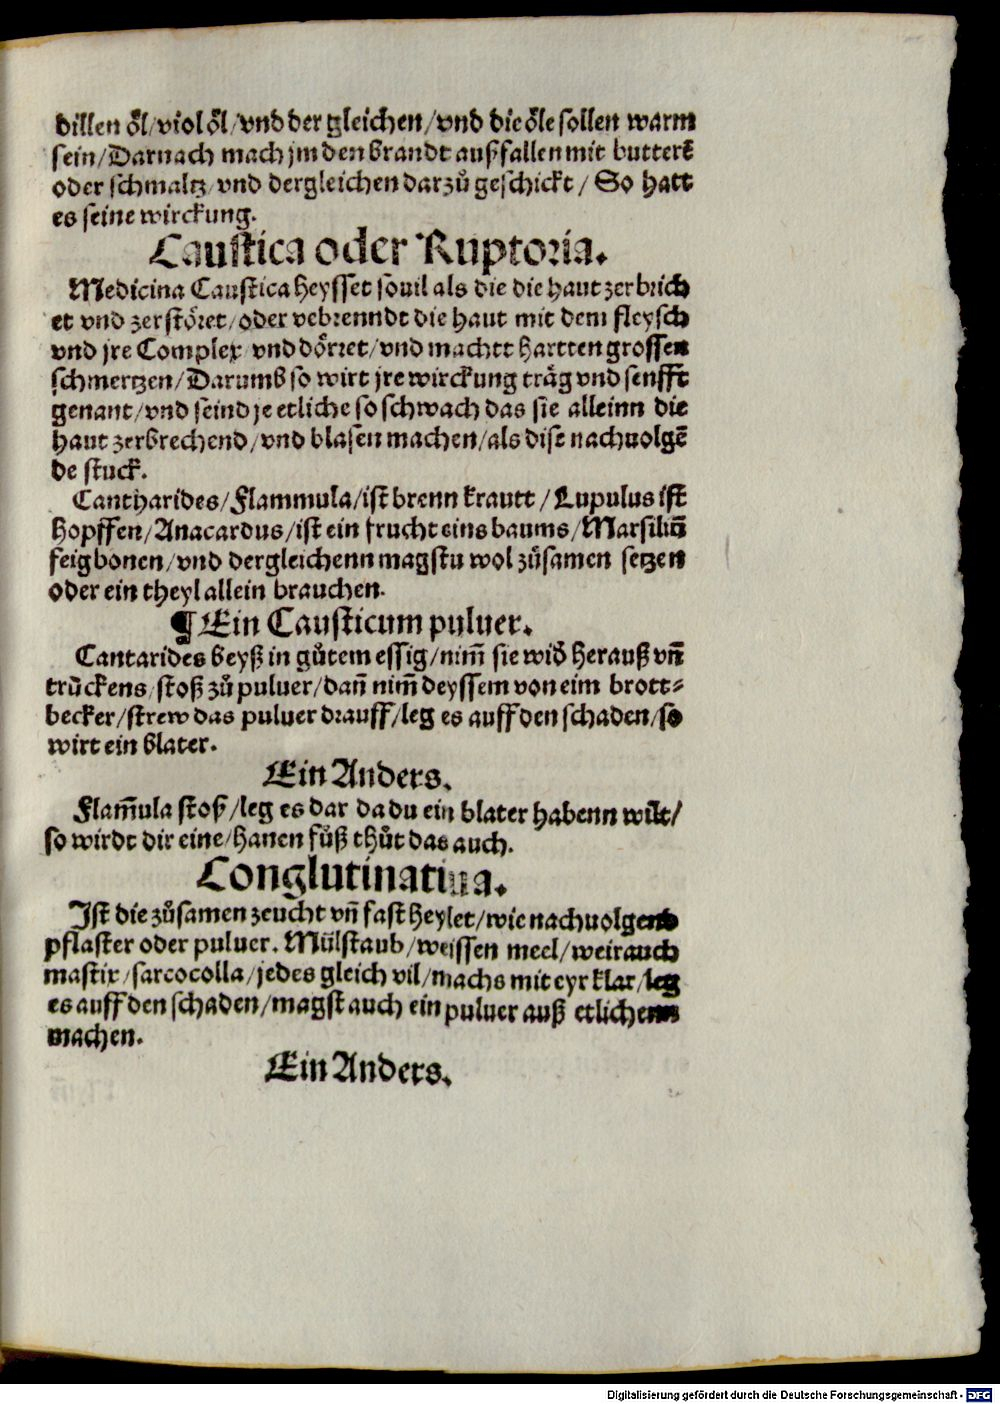 dillen öl/viol öl/vnd der gleichen/vnd die öle sollen warm
sein/Darnach mach jm den brandt außfallen mit butterẽ
oder schmaltz/vnd dergleichen darzů geschickt/ So hatt
es seine wirckung.
Caustica oder Ruptoria.
Medicina Caustica heysset souil als die die haut zerbrich
et vnd zerstöret/oder vebrenndt die haut mit dem fleysch
vnd jre Complex vnd dörret/vnd machtt hartten grossen
schmertzen/Darumb so wirt jre wirckung träg vnd senfft
genant/vnd seind je etliche so schwach das sie alleinn die
haut zerbrechend/vnd blasen machen/als dise nachuolgẽ
de stuck.
Cantharides/Flammula/ist brenn krautt/Lupulus ist
Hopffen/Anacardus/ist ein frucht eins baums/Marsiliũ
feigbonen/vnd dergleichenn magstu wol zůsamen setzen
oder ein theyl allein brauchen.
¶ Ein Causticum puluer.
Cantarides beyß in gůtem essig/nim̃ sie wid̕ herauß vñ
trückens/stoß zů puluer/dañ nim̃ deyssem von eim brott⸗
becker/strew das puluer drauff/leg es auff den schaden/so
wirt ein blater.
Ein Anders.
Flam̃ula stoß/leg es dar da du ein blater habenn wilt/
so wirdt dir eine/hanen fůß thůt das auch.
Conglutinatiua.
Ist die zůsamen zeucht vñ fast heylet/wie nachuolgend
pflaster oder puluer. Mülstaub/weissen meel/weirauch
mastix/sarcocolla/jedes gleich vil/machs mit eyr klar/leg
es auff den schaden/magst auch ein puluer auß etlichenn
machen.
Ein Anders.
Digitalisierung gefördert durch die Deutsche Forschungsgemeinschaft - DFG